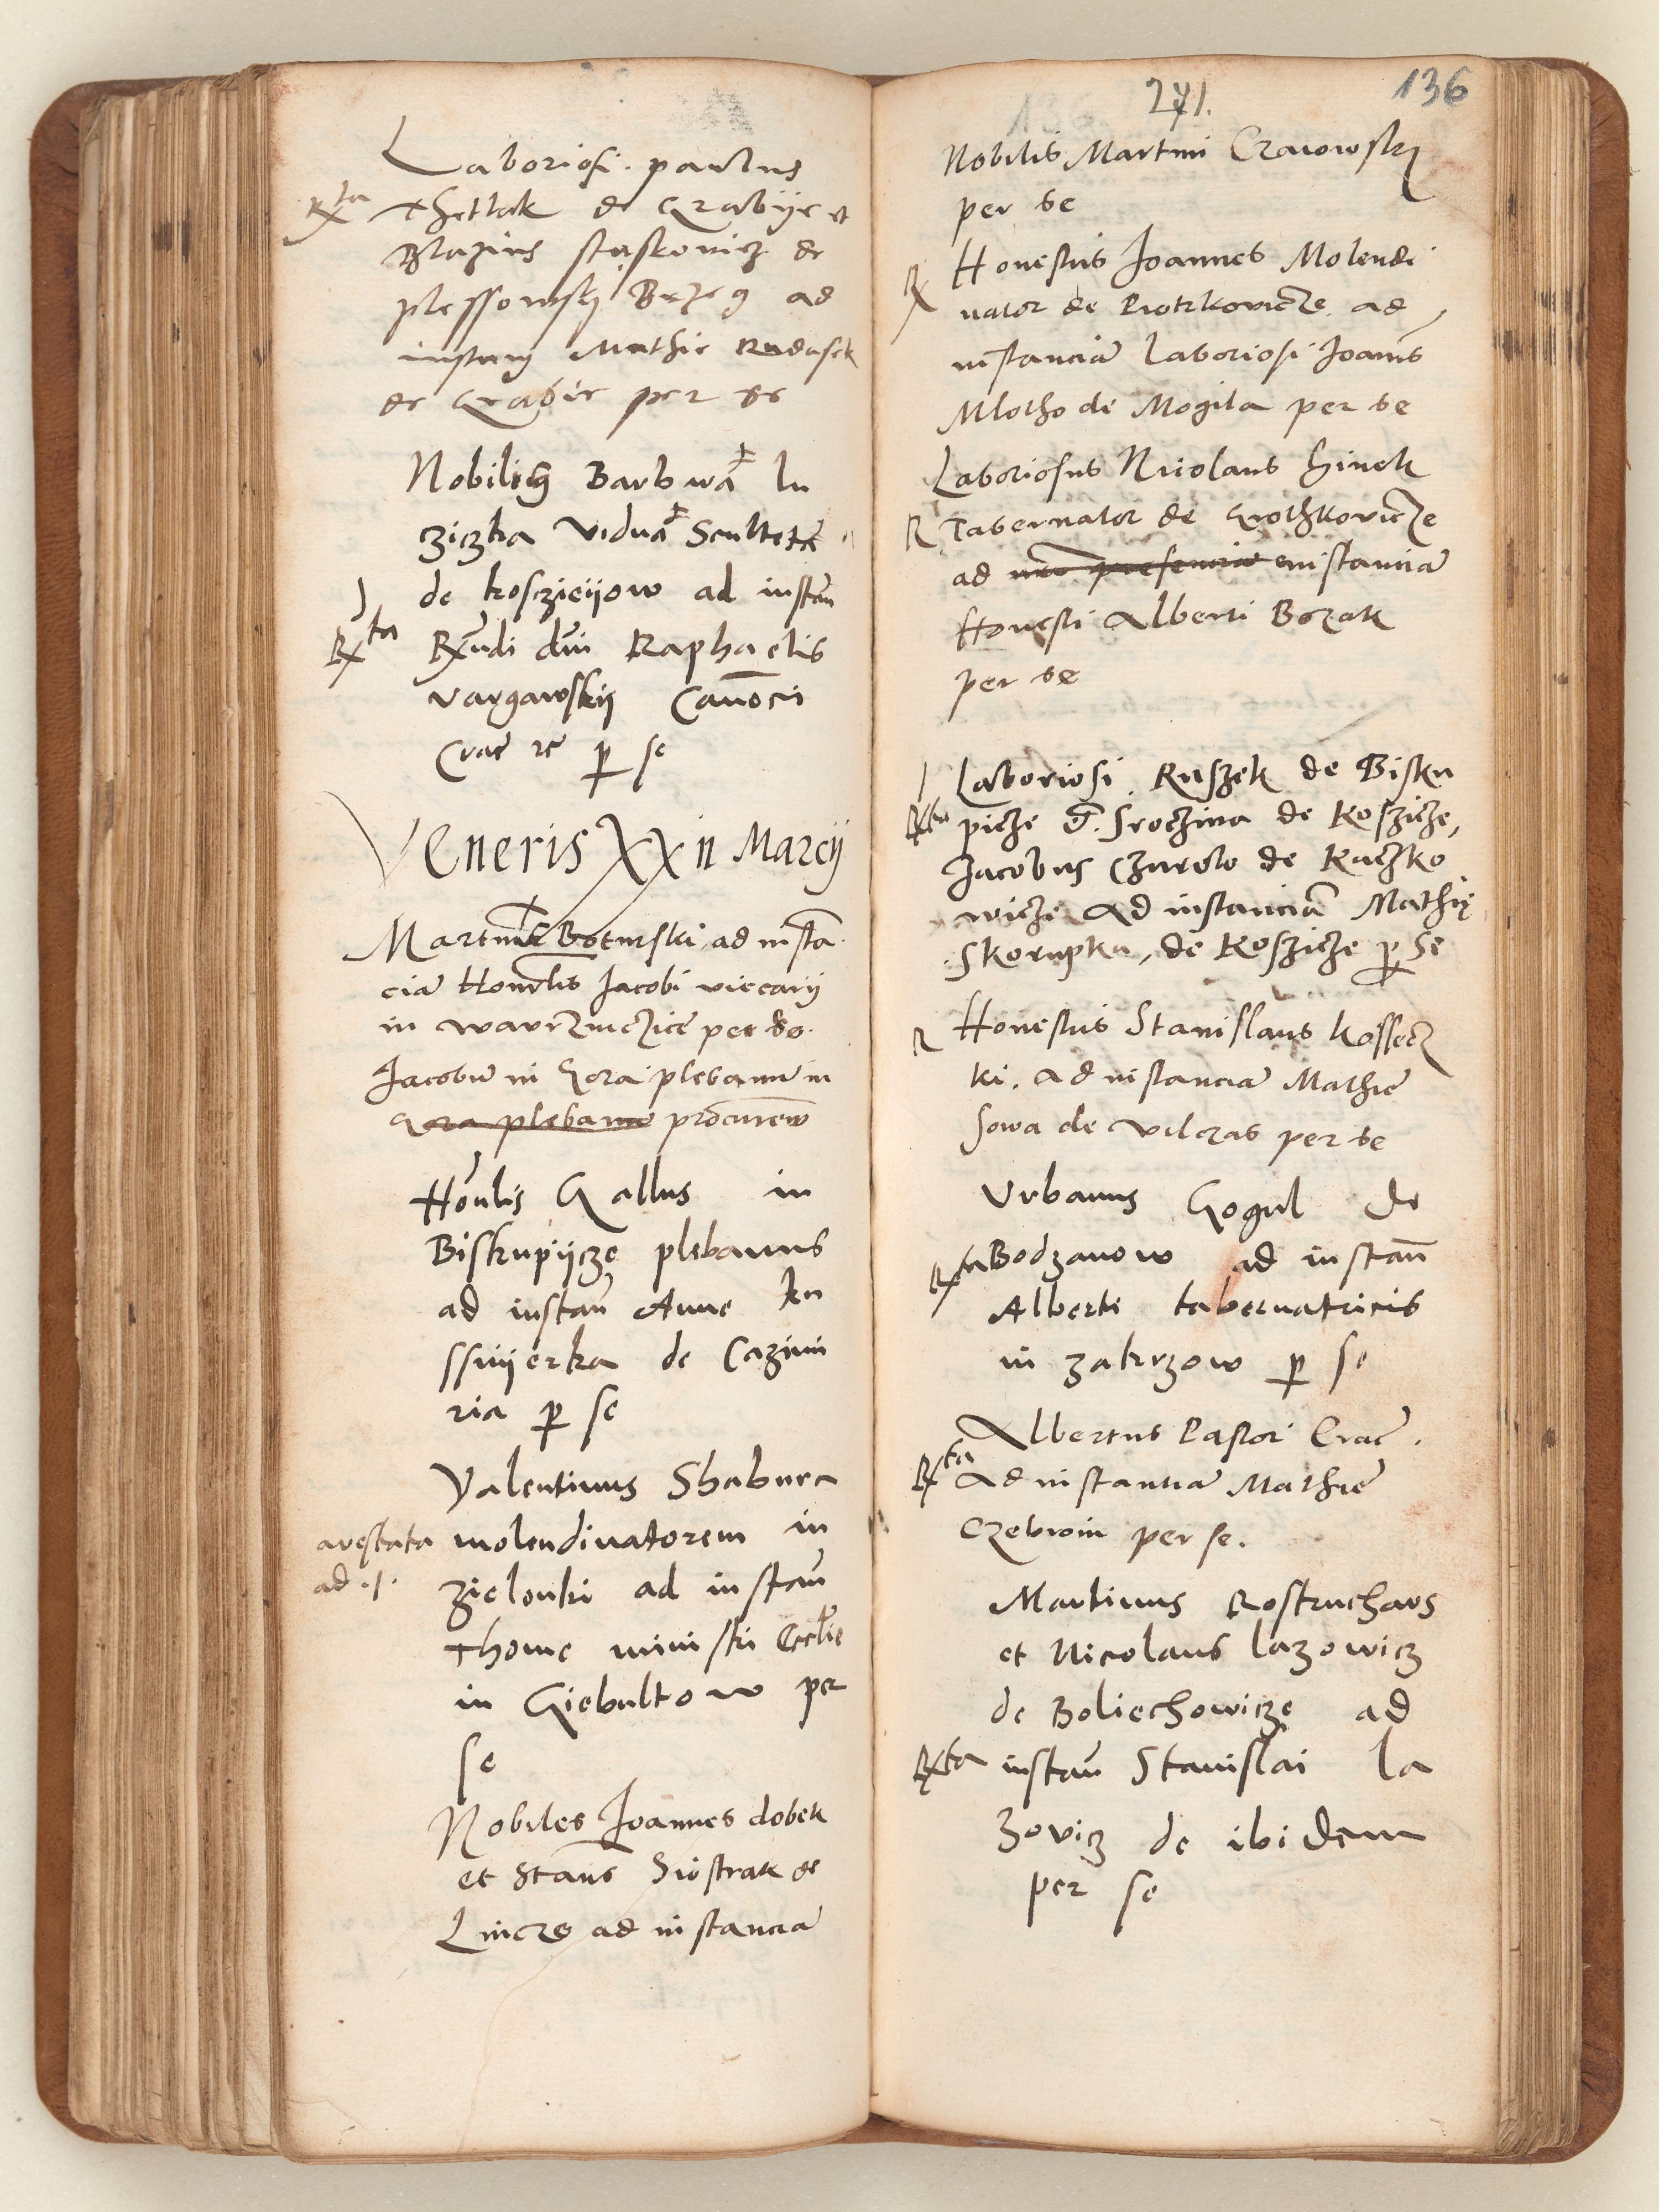 Laboriosi. paulus
Rta Thetlak de Grabije et
Blazius staskovicz de
plessowski Brzeg ad
instan Mathie Rudasek
de Grabie per se
Nobilis Barbara Lu
ziczka vidua Sculteta
de kosczieijow ad instan
Rta Rndi dni Raphaelis
vargawskij Canonci
Crac zc p se
Veneris XXII Marcij
Martinus Boturski ad insta
cia Honorlis Jacobi viccarij
in wavrzinczice per se.
Jacobu in Gora plebanum in
Gora plebanum procurem
Honlis Gallus in
Biskupijcze plebanus
ad instan Anne kn
ssnijerka de Cazimi
ria p se
Valentinus Shabura
arestata molendinatorem in
ad .1. zielonki ad instan
Thome ministri Ecclie
in Giebultow per
se
Nobiles Joannes dobek
et Stans Siostrak de
Lincze ad instancia
271. 136
Nobilis Martini Czaiowski
per se
R Honestus Joannes Molendi
nator de Piotrkovicze. ad
instancia laboriosi Joanis
Mlotho de Mogila per se
Laboriosus Nicolaus hinek
R Tabernator de Grothkovicze
ad presencia instancia
Honesti Alberti Bozak
per se
Laboriosi Ruszek de Bisku
Rta picze G. Sroczina de Koszicze,
Jacobus Czurolo de Raczko
wicze Ad instancia Mathie
Skorupka, de Koszicze p se
R Honestus Stanislaus kossecz
ki. Ad instancia Mathie
Sowa de vilczas per se
Urbanus Gogul de
Rta Bodzanow ad instan
Alberti tabernatricis
in zakrzow p se
Albertus Pastor Crac.
Rta Ad instantia Mathie
Czebroin per se.
Martinus Rostruchars
et Nicolaus lazowicz
de Boliechowicze ad
Rta instan Stanislai La
zovicz de ibidem
per se